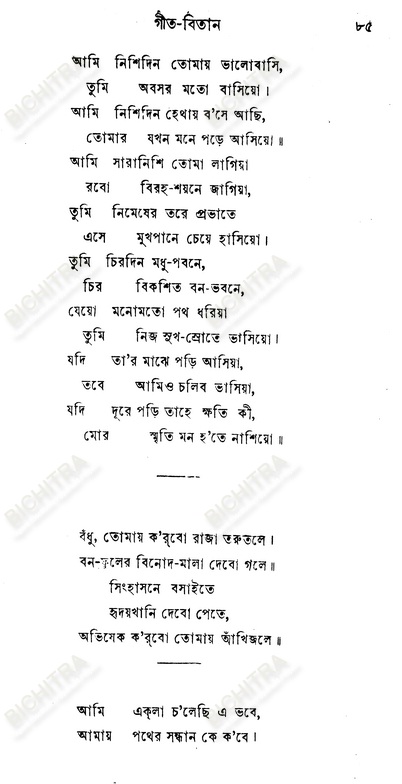 গীত-বিতান ৮৫
আমি নিশিদিন তোমায় ভালোবাসি,
তুমি অবসর মতো বাসিয়ো।
আমি নিশিদিন হেথায় ব'সে আছি,
তোমার যখন মনে পড়ে আসিয়ো॥
আমি সারানিশি তোমা লাগিয়া
রবো বিরহ-শয়নে জাগিয়া,
তুমি নিমেষের তরে প্রভাতে
এসে মুখপানে চেয়ে হাসিয়ো।
তুমি চিরদিন মধু-পবনে,
চির বিকশিত বন-ভবনে,
যেয়ো মনোমতো পথ ধরিয়া
তুমি নিজ সুখ-স্রোতে ভাসিয়ো।
যদি তা'র মাঝে পড়ি আসিয়া,
তবে আমিও চলিব ভাসিয়া,
যদি দূরে পড়ি তাহে ক্ষতি কী,
মোর স্মৃতি মন হ'তে নাশিয়ো॥
বঁধু, তোমায় ক'র্‌বো রাজা তরুতলে।
বন-ফুলের বিনোদ-মালা দেবো গলে॥
সিংহাসনে বসাইতে
হৃদয়খানি দেবো পেতে,
অভিষেক ক'র্‌বো তোমায় আঁখিজলে॥
আমি এক্‌লা চ'লেছি এ ভবে,
আমায় পথের সন্ধান কে ক'বে।
BICHITRA
BICHITRA
BICHITRA
BICHITRA
BICHITRA
BICHITRA
BICHITRA
BICHITRA